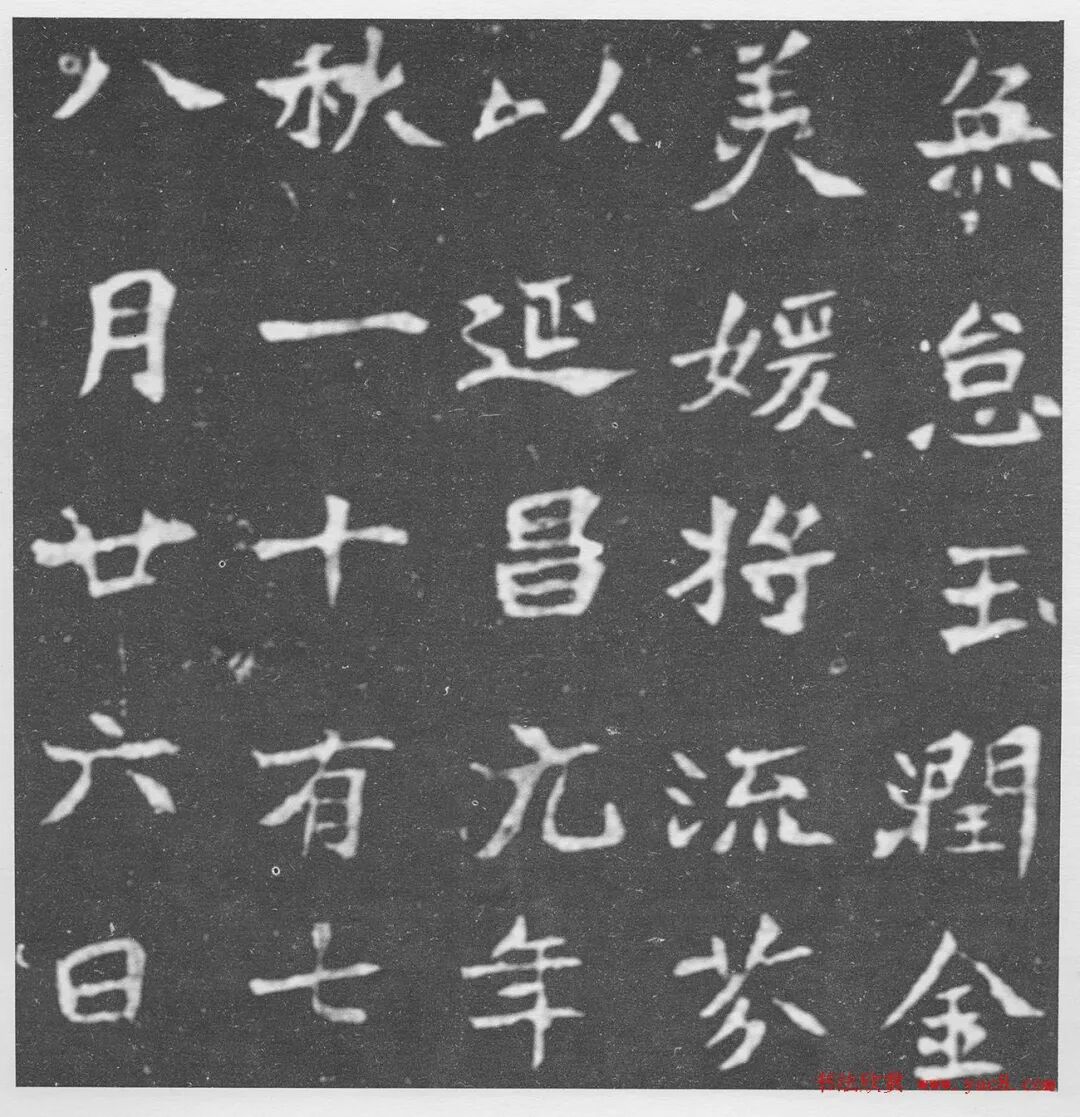 無怠玉潤金
美媛将流芬
以延昌元年
秋一十有七
八月廿六日
书法欣赏 www.yac8.com